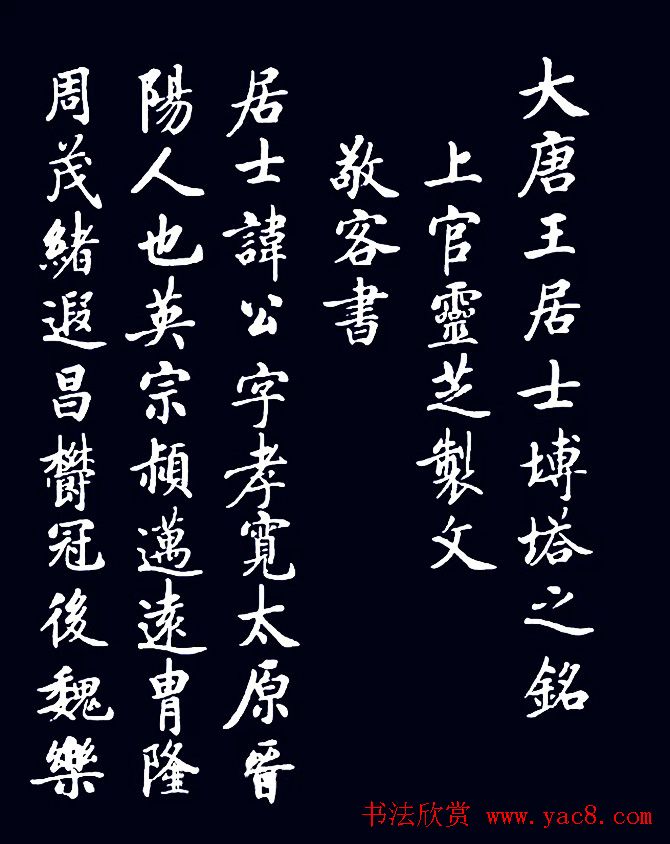 大唐王居士塼塔之銘
上官靈芝製文
敬客書
居士諱公字孝寬太原晉
陽人也英宗穎邁遠冑隆
周茂緒遐昌欝冠後魏樂
书法欣赏 www.yac8.com